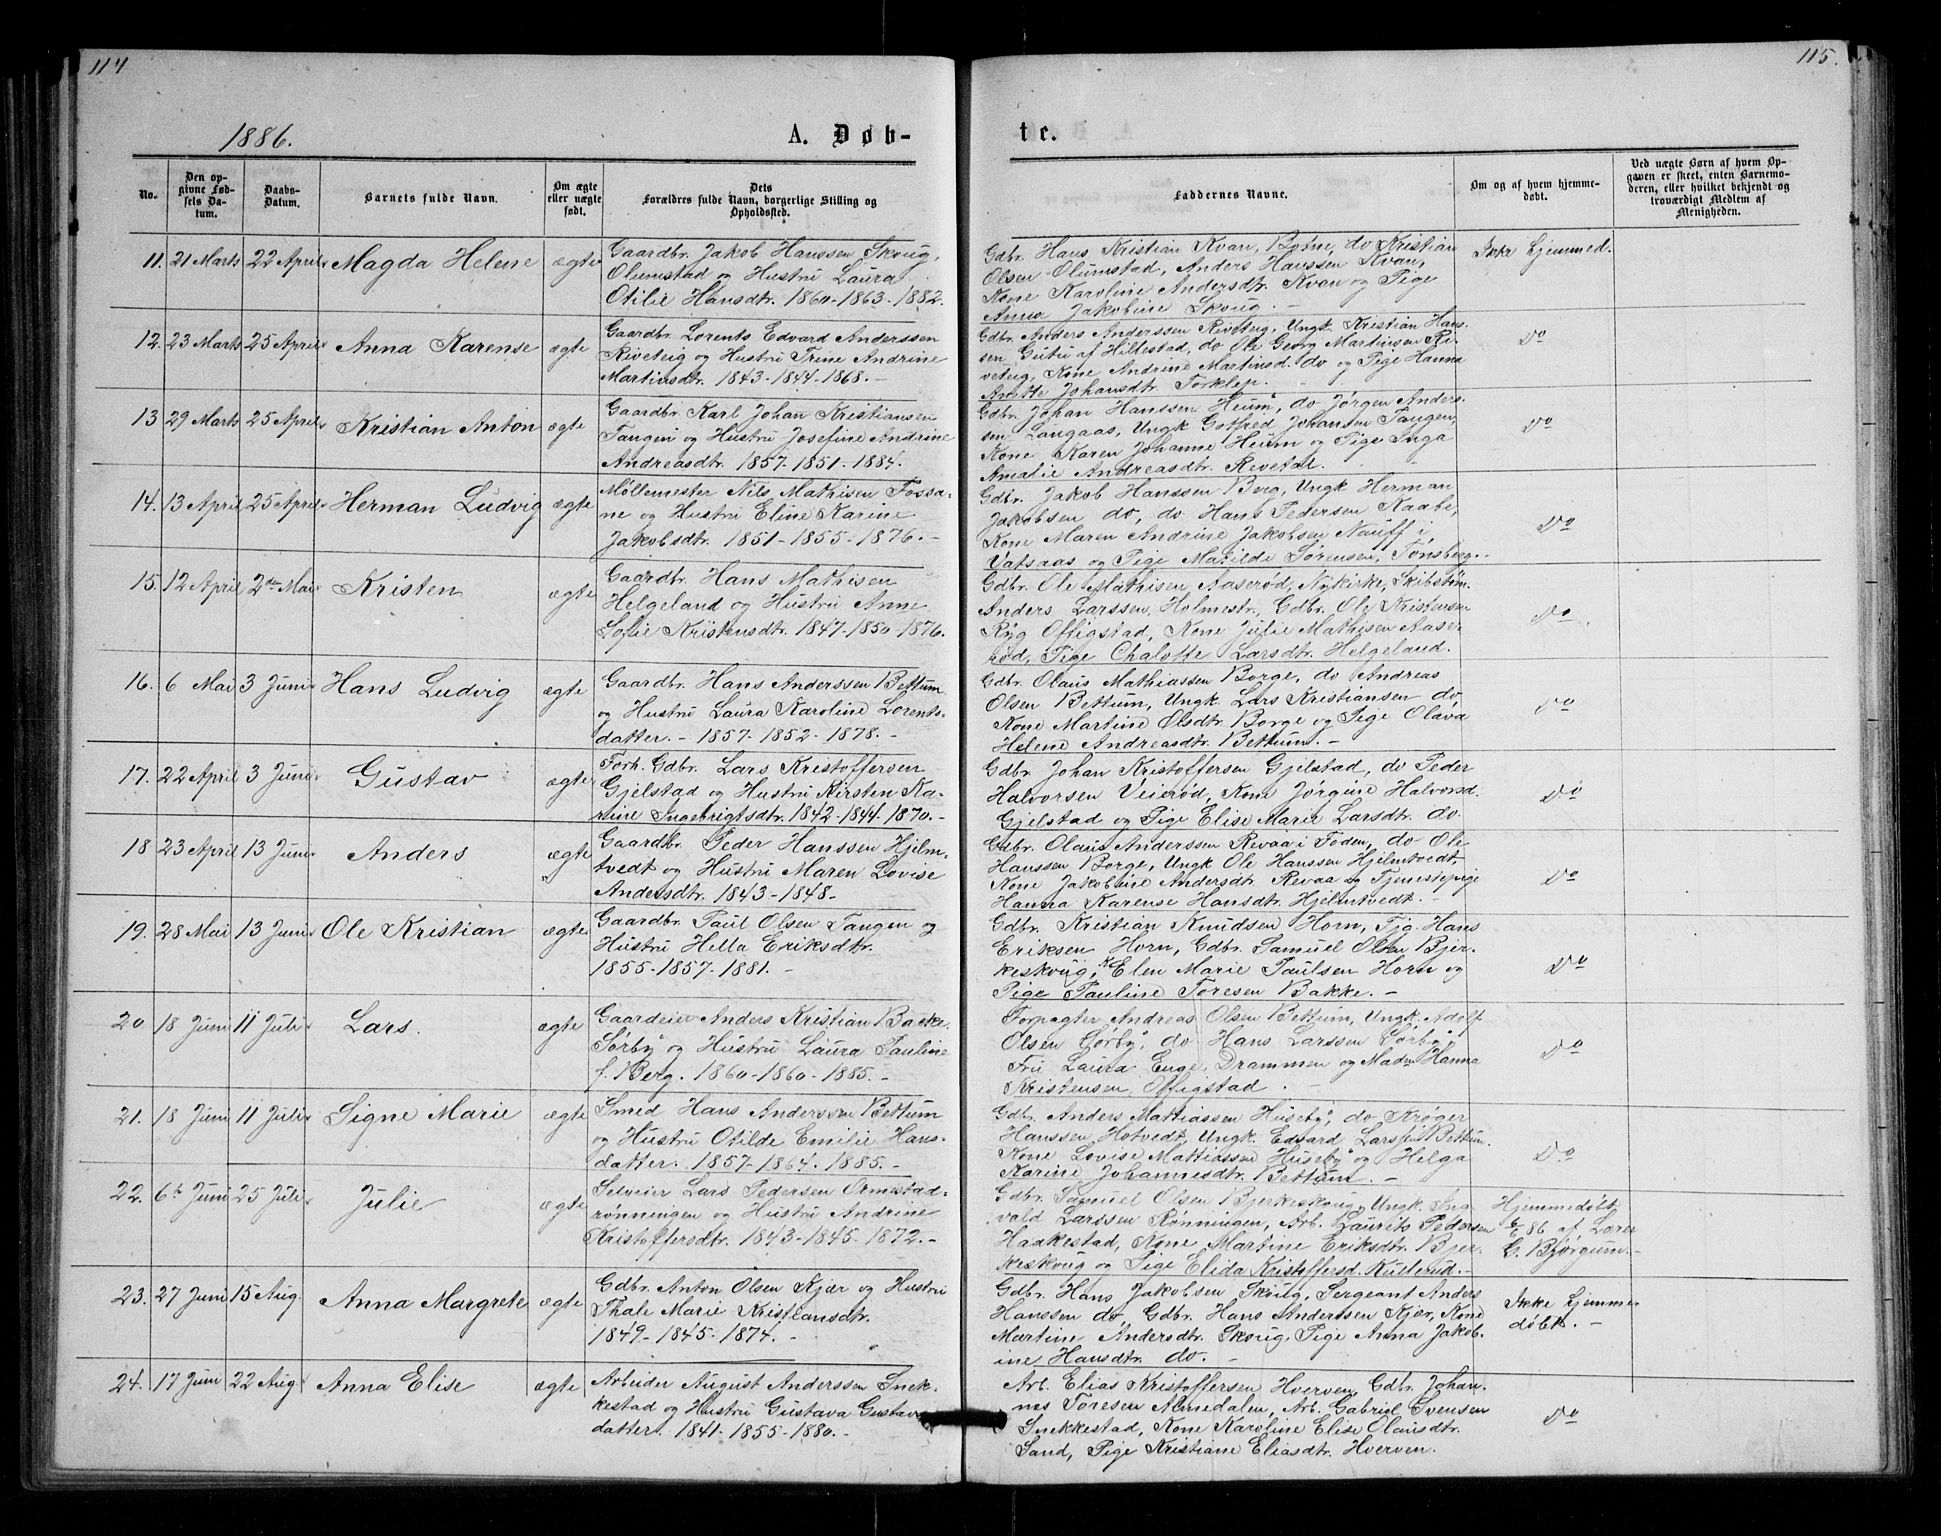 114
115.
1886.
A. Døb-
te.
No.
Den op-
givne Fød-
sels Da-
tum.
Daabs-
Datum.
Barnets fulde Navn.
Om ægte
eller uægte
født.
Dets
Forældres fulde Navn, borgerlige Stilling og
Opholdsted.
Faddernes Navne.
Om og af hvem hjemme-
døbt.
Ved uægte Børn af hvem Op-
gaven er skeet, enten Barnemo-
deren, eller hvilket bekjendt og
troværdigt Medlem af
Menigheden.
11. 21 Marts 22 April Magda Helene ægte
Gaardbr. Jakob Hanssen Skoug,
Olumstad og Hustru Laura
Otilie Hansdtr. 1860-1863-1882.
Gdbr. Hans Kristian Kvan, Botne, do Kristian
Olsen Olumstad, Anders Hanssen Kvan,
Kone Karoline Andersdtr. Kvan og Pige
Anna Jakobine Skoug. -
Ikke hjemmed.
12. 23 Marts 25 April Anna Karense ægte
Gaardbr. Lorents Edvard Anderssen
Riveteig og Hustru Trine Andrine
Martinsdtr. 1843-1844-1868.-
Gdbr. Anders Anderssen Riveteig, Ungk. Kristian Han-
sen Gutu af Hillestad, do Ole Georg Martinsen Ri-
veteig, Kone Andrine Martinsd. do og Pige Hanna
Anette Johansdtr. Torklep. -
Do
13 29 Marts 25 April Kristian Anton ægte
Gaardbr. Karl Johan Kristiansen
Tangen og Hustru Josefine Andrine
Andreasdtr. 1857-1851-1884.
Gdbr. Johan Hanssen Heum, do Jørgen Anders-
sen Langaas, Ungk Gotfred Johansen Tangen,
Kone Karen Johanne Heum og Pige Inga
Amalie Andreasdtr. Revetal. -
Do
14. 13 April 25 April Herman Ludvig ægte
Møllemester Nils Mathisen Fossa-
ne og Hustru Eline Karine
Jakobsdtr. 1851-1855-1876.-
Gdbr. Jakob Hanssen Berg, Ungk Herman
Jakobsen do, do Hans Pedersen Kaabe,
Kone Maren Andrine Jakobsen Nauff i
Vatsaas og Pige Matilde Sørensen, Tønsberg.
Do
15. 12 April 2den Mai Kristen ægte
Gaardbr. Hans Mathisen
Helgeland og Hustru Anne
Sofie Kristensdtr. 1847-1850-1876.
Gdbr. Ole Mathisen Aaserød, Nykirke, Skibstøm.
Anders Larssen, Holmestr., Gdbr. Ole Kristensen
Ryg Offigstad, Kone Julie Mathisen Aase-
rød, Pige Chalotte Larsdtr. Helgeland.
Do
16. 6 Mai 3 Juni Hans Ludvig ægte
Gaardbr. Hans Anderssen Bettum
og Hustru Laura Karoline Lorents-
datter. - 1857-1852-1878.-
Gdbr. Olaus Mathiassen Borge, do Andreas
Olsen Bettum, Ungk. Lars Kristiansen do,
Kone Martine Olsdtr. Borge og Pige Olava
Helene Andreasdtr. Bettum. -
Do
17. 22 April 3 Juni Gustav ægte
Forh. Gdbr. Lars Kristoffersen
Gjelstad og Hustru Kirsten Ka-
rine Ingebrigtsdtr. 1842-1844-1870.-
Gdbr. Johan Kristoffersen Gjelstad, do Peder
Halvorsen Veierød, Kone Jørgine Halvorsd.
Gjelstad og Pige Elise Marie Larsdtr. do.
Do
18 23 April 13 Juni Anders ægte
Gaardbr. Peder Hanssen Hjelm-
tvedt og Hustru Maren Lovise
Andersdtr. 1843-1848-
Gdbr. Olaus Anderssen Revaa i Foden, do Ole
Hanssen Borge, Ungk Ole Hanssen Hjelmtvedt
Kone Jakobine Andersdtr Revaa og Tjenestepige
Hanna Karense Hansdtr. Hjelmtvedt. -
Do
19. 28 Mai 13 Juni Ole Kristian ægte
Gaardbr. Paul Olsen Tangen og
Hustru Hella Eriksdtr.
1855-1857-1881. -
Gdbr. Kristian Knudsen Horn, Tjg. Hans
Eriksen Horn, Gdbr. Samuel Olsen Bjer-
keskoug, K Elen Marie Paulsen Horn og
Pige Pauline Toresen Bakke. -
Do
20 18 Juni 11 Juli Lars. ægte
Gaardeier Anders Kristian Backe
Sørby og Hustru Laura Pauline
f. Berg. 1860-1860-1885.-
Forpagter Andreas Olsen Bettum, Ungk. Adolf
Olsen Sørby, do Hans Larssen Sørby,
Fru Laura Enge, Drammen og Madm Hanna
Kristensen Offigstad. -
Do
21. 18 Juni 11 Juli Signe Marie ægte
Smed Hans Anderssen Bettum
og Hustru Otilde Emilie Hans-
datter. 1857-1864-1885.-
Gdbr. Anders Mattiassen Huseby, do Krøger
Hanssen Hotvedt, Ungk. Edvard Larssen Bettum.
Kone Lovise Mattiassen Huseby og Helga
Karine Johannesdtr. Bettum. -
Do
22. 6t Juni 25 Juli Julie ægte
Selveier Lars Pedersen Ormestad-
rønningen og Hustru Andrine
Kristoffersdtr. 1843-1845-1872.-
Gdbr. Samuel Olsen Bjerkeskoug, Ungk. Ing-
vald Larssen Rønningen, Arb. Laurits Pedersen
Haakestad, Kone Martine Eriksdtr. Bjer-
keskoug og Pige Elida Kristoffersd. Kullerud.-
Hjemmedøbt
6/6 86 af Lærer
G. Bjørgum.-
23. 27 Juni 15 Aug. Anna Margrete ægte
Gdbr. Anton Olsen Kjær og Hustru
Thale Marie Kristiansdtr.
1849-1845-1874. -
Gdbr. Hans Jakobsen Skoug, Sergeant Anders
Hanssen do, Gdbr. Hans Anderssen Kjær, Kone
Martine Andersdtr. Skoug, Pige Anna Jakob-
ine Hansdtr. do. -
Ikke hjemme-
døbt. -
24. 17 Juni 22 Aug. Anna Elise ægte
Arbeider August Anderssen Snek-
kestad og Hustru Gustava Gustavs-
datter. 1841-1855-1880.-
Arb. Elias Kristoffersen Hverven, Gdbr. Johan-
nes Toresen Almedalen, Arb. Gabriel Svensen
Snekkestad, Kone Karoline Elise Olausdtr.
Sand, Pige Kristiane Eliasdtr. Hverven.
Do